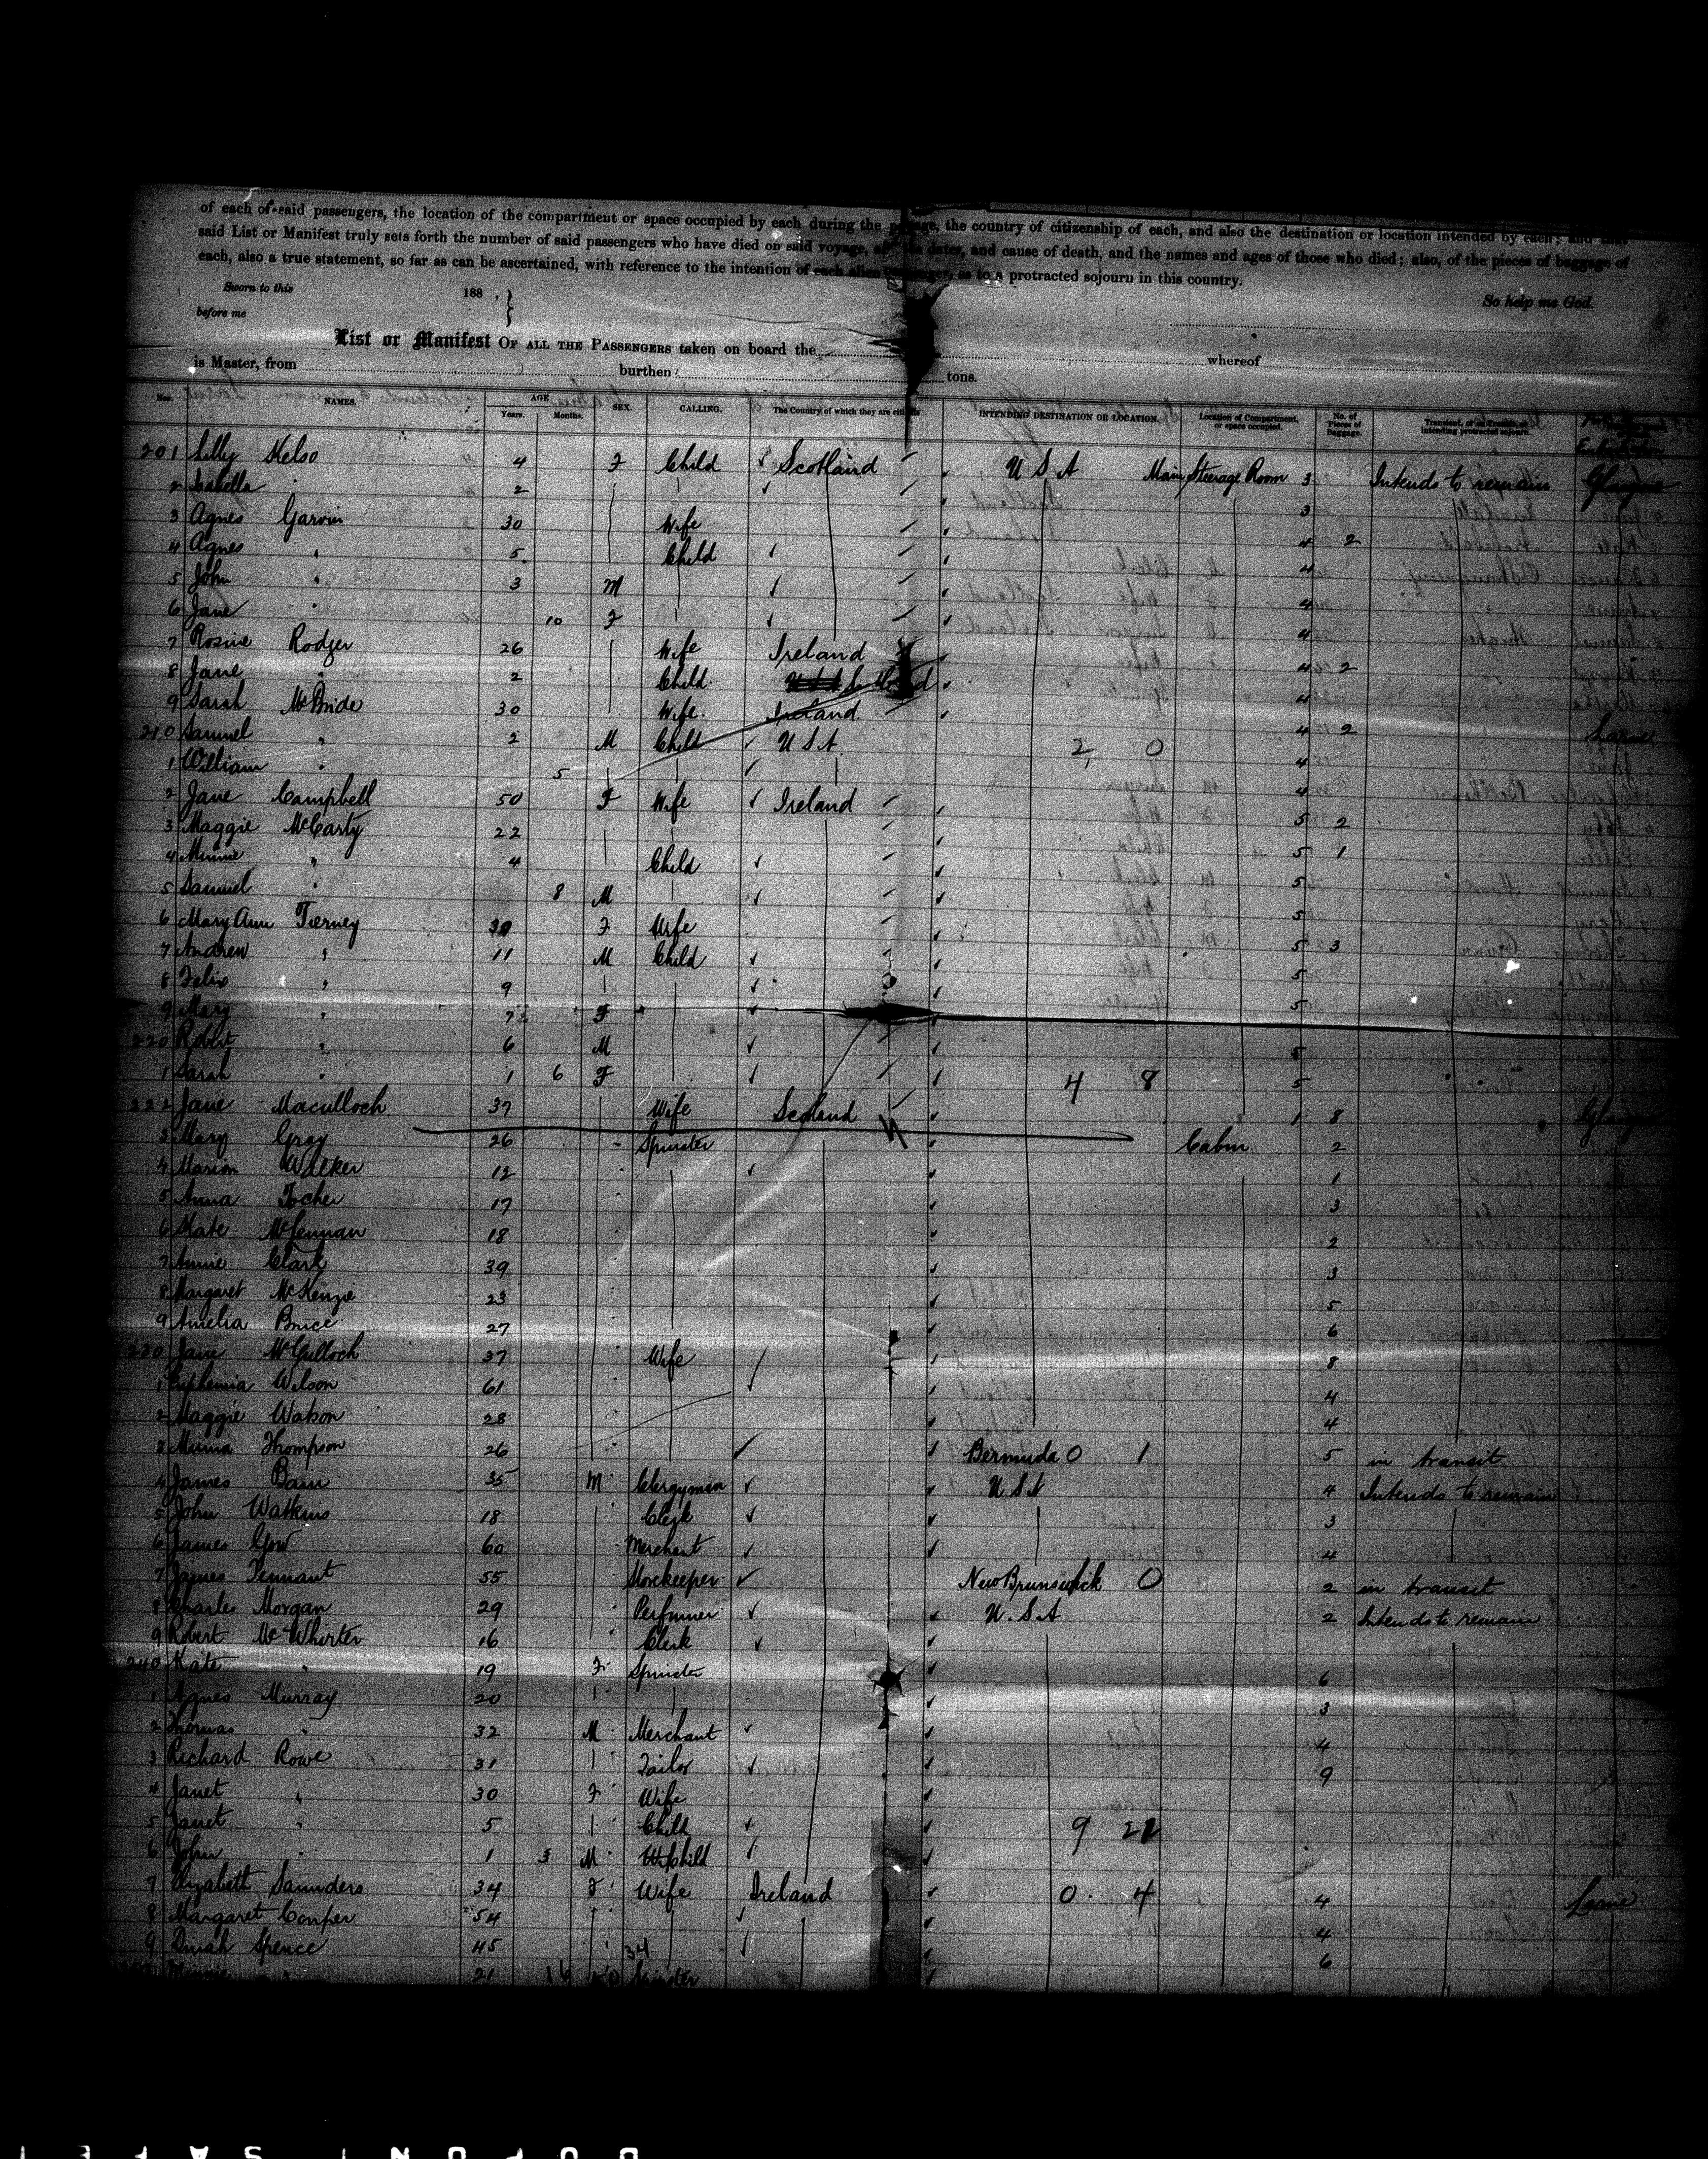 of each of said passengers, the location of the compartment or space occupied by each during the passage, the country of citizenship of each, and also the destination or location intended by each; and that
said List or Manifest truly sets forth the number of said passengers who have died on said voyage, and dates, and cause of death, and the names and ages of those who died; also, of the pieces of baggage of
each, also a true statement, so far as can be ascertained, with reference to the intention of each alien passenger, as to a protracted sojourn in this country.
Sworn to this 188 , } So help me God.
before me
List or Manifest OF ALL THE PASSENGERS taken on board the whereof
is Master, from burthen tons.
Nos. NAMES. AGE Years. Months. SEX. CALLING. The Country of which they are citizens INTENDING DESTINATION OR LOCATION. Location of Compartment, or space occupied. No. of Pieces of Baggage.
201 Lilly Kelso 4 F Child Scotland U S A Main Steerage Room 3 Intends to remain Glasgow
2 Isabella " 2 3
3 Agnes Garvin 30 Wife 4 2
4 Agnes " 5 Child 4
5 John " 3 M 4
6 Jane " 10 F 4
7 Rosine Rodger 26 Wife Ireland 4 2
8 Jane " 2 Child 4
9 Sarah McBride 30 Wife Ireland 4 2 Larne
210 Samuel " 2 M Child U S A 2 0 4
1 William " 5 4
2 Jane Campbell 50 F Wife Ireland 5 2
3 Maggie McCarty 22 5 1
4 Minnie " 4 Child 5
5 Samuel " 8 M 5
6 Mary Ann Tierney 30 F Wife 5 3
7 Andrew " 11 M Child 5
8 Felix " 9 5
9 Mary " 7 F
220 Robert " 6 M 5
1 Sarah " 1 6 F 4 8 5
222 Jane Maculloch 37 Wife Scotland 1 8 Glasgow
3 Mary Gray 26 Spinster Cabin 2
4 Marion Walker 12 1
5 Anna Tocher 17 3
6 Kate McLennan 18 2
7 Annie Clark 39 3
8 Margaret McKenzie 23 5
9 Amelia Bruce 27 6
230 Jane McCulloch 37 Wife 8
1 Euphemia Wilson 61 4
2 Maggie Watson 28 4
3 Minna Thompson 26 Bermuda 0 1 5 in transit
4 James Bain 35 M Clergyman U S A 4 Intends to remain
5 John Watkins 18 Clerk 3
6 James Gow 60 Merchant 4
7 James Tennant 55 Storekeeper New Brunswick 0 2 in transit
8 Charles Morgan 29 Perfumer U.S.A 2 Intends to remain
9 Robert McWhirter 16 Clerk
240 Kate " 19 F Spinster 6
1 Agnes Murray 20 3
2 Thomas " 32 M Merchant 4
3 Richard Rowe 31 Tailor 9
4 Janet " 30 F Wife
5 Janet " 5 Child 9 22
6 John " 1 3 M Child
7 Elizabeth Saunders 34 F Wife Ireland 0 4 4 Larne
8 Margaret Cooper 54 4
9 Dinah Spence 45 34 6
21 Spinster